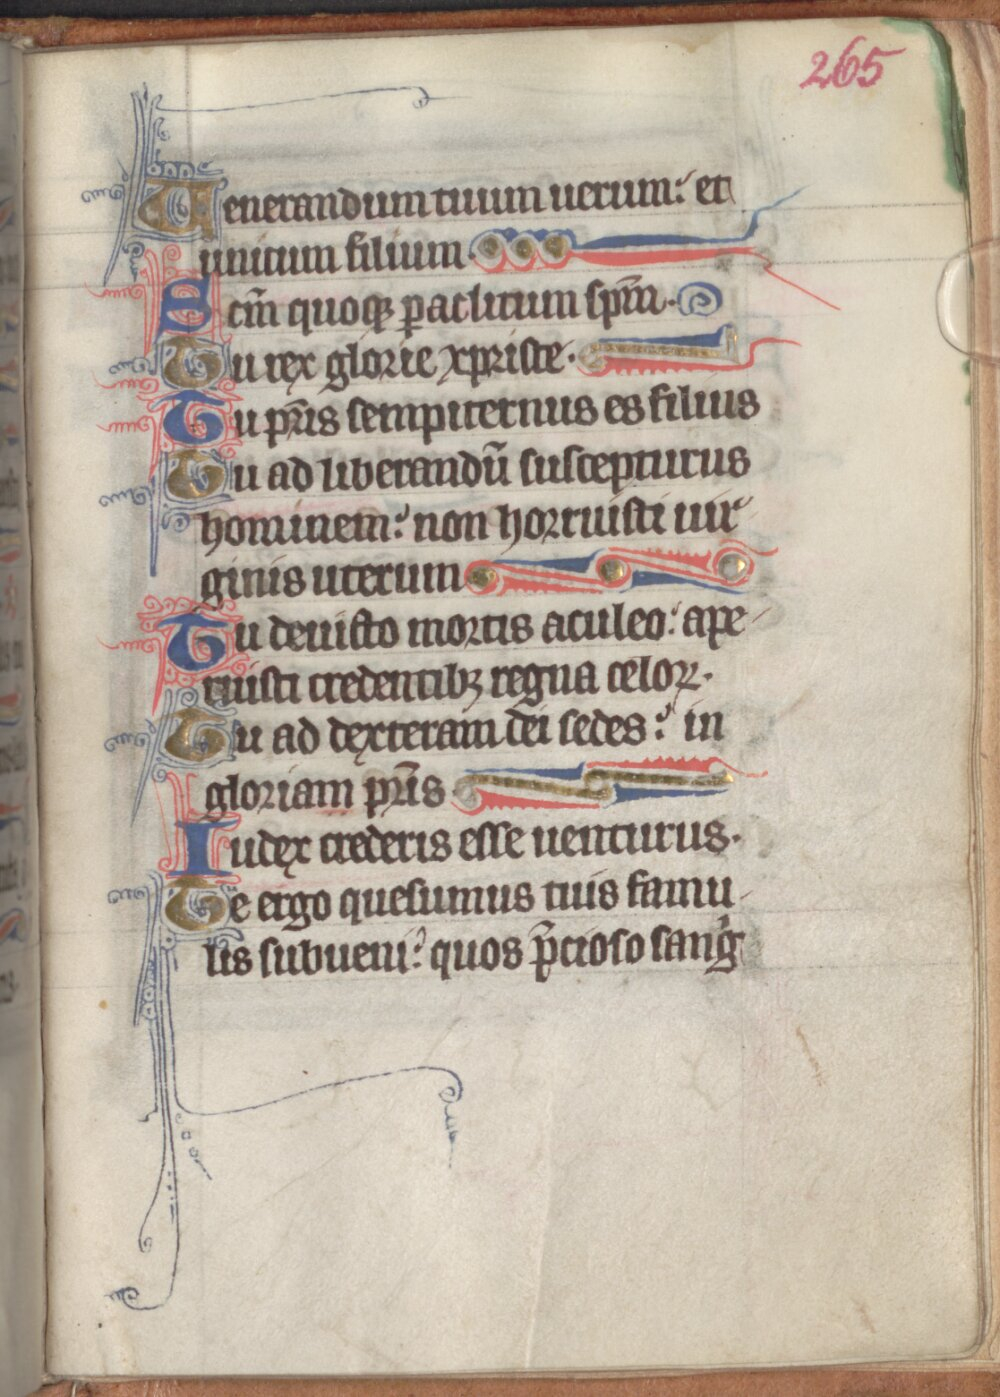 265
Uenerandum tuum uerum: et
unicum filium.
Scm̃ quoqꝫ paclitum spm̃.
Tu rex glorie xpriste.
Tu pr̃is sempiternus es filius
Tu ad liberandũ suscepturus
hominem: non horruisti uir
ginis uterum
Tu deuicto mortis aculeo: ape
ruisti credentibꝫ regna celoꝝ.
Tu ad dexteram dei sedes: in
gloriam pr̃is
Iudex crederis esse uenturus.
Te ergo quesumus tuis famu
lis subueni: quos p̃cioso sang